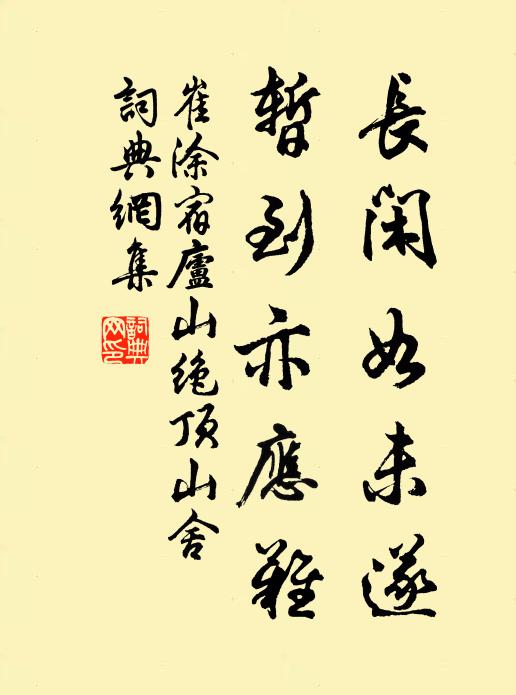 長閑如未遂
暫到亦應難
崔涂宿廬山絶頂山舍
詞典網集
詞典網印